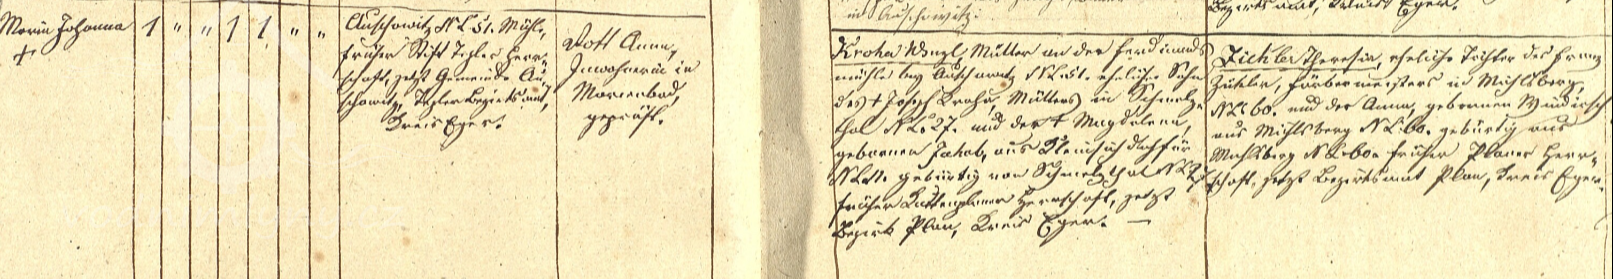 Maria Johanna
+
1 " " 1 1 " "
Auschowitz N C 51. Mühle,
früher Stift Tepler Herr-
schaft, jetzt Gemeinde Au-
schowitz, Tepler Bezirksamt,
Kreis Eger.
Vott Anna,
Inwohnerin in
Marienbad,
geprüft.
in Auschowitz.
Bezirksamt, Kreis Eger.
Kroha Wenzl, Müller an der Ferdinands
mühle bey Auschowitz N C 51. ehelicher Sohn
des + Joseph Kroha, Müllers in Schmelz
thal N C. 27. und der + Magdalena,
gebornen Jakob, aus
N C 11. gebürtig von Schmelzthal N C 27
früher Kuttenplaner Herrschaft, jetzt
Bezirk Plan, Kreis Eger. —
Zickler Theresia, eheliche Tochter des Franz
Zickler, Färbermeisters in Michlsberg,
N C 60. und der Anna, gebornen Windirsch
aus Michlsberg N C 60. gebürtig aus
Michlsberg N C 60. früher Planer Herr-
schaft, jetzt Bezirksamt Plan, Kreis Eger.